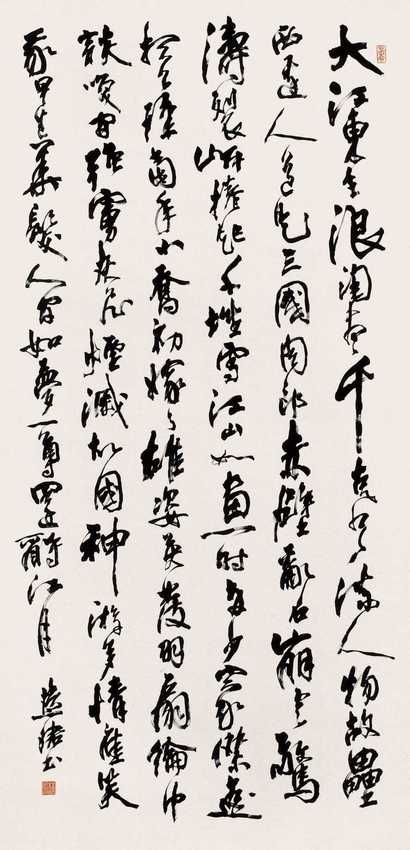 大江東去浪淘盡千古風流人物故壘
西邊人道是三國周郎赤壁亂石崩雲驚
濤裂岸捲起千堆雪江山如畫一時多少豪傑遙
想公瑾當年小喬初嫁了雄姿英發羽扇綸巾
談笑間強虜灰飛煙滅故國神游多情應笑
我早生華髮人間如夢一尊還酹江月